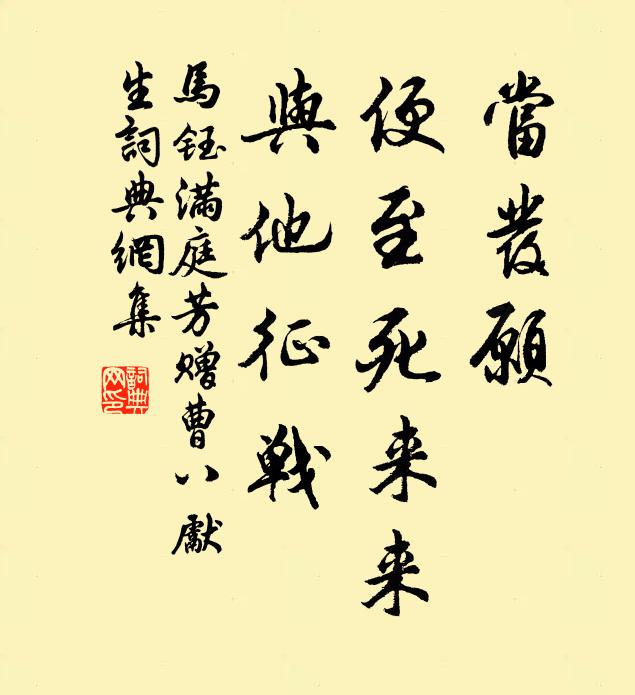 當發願
便至死来来
與他征戰
馬鈺滿庭芳贈曹八獻
生詞典網集
詞典網印